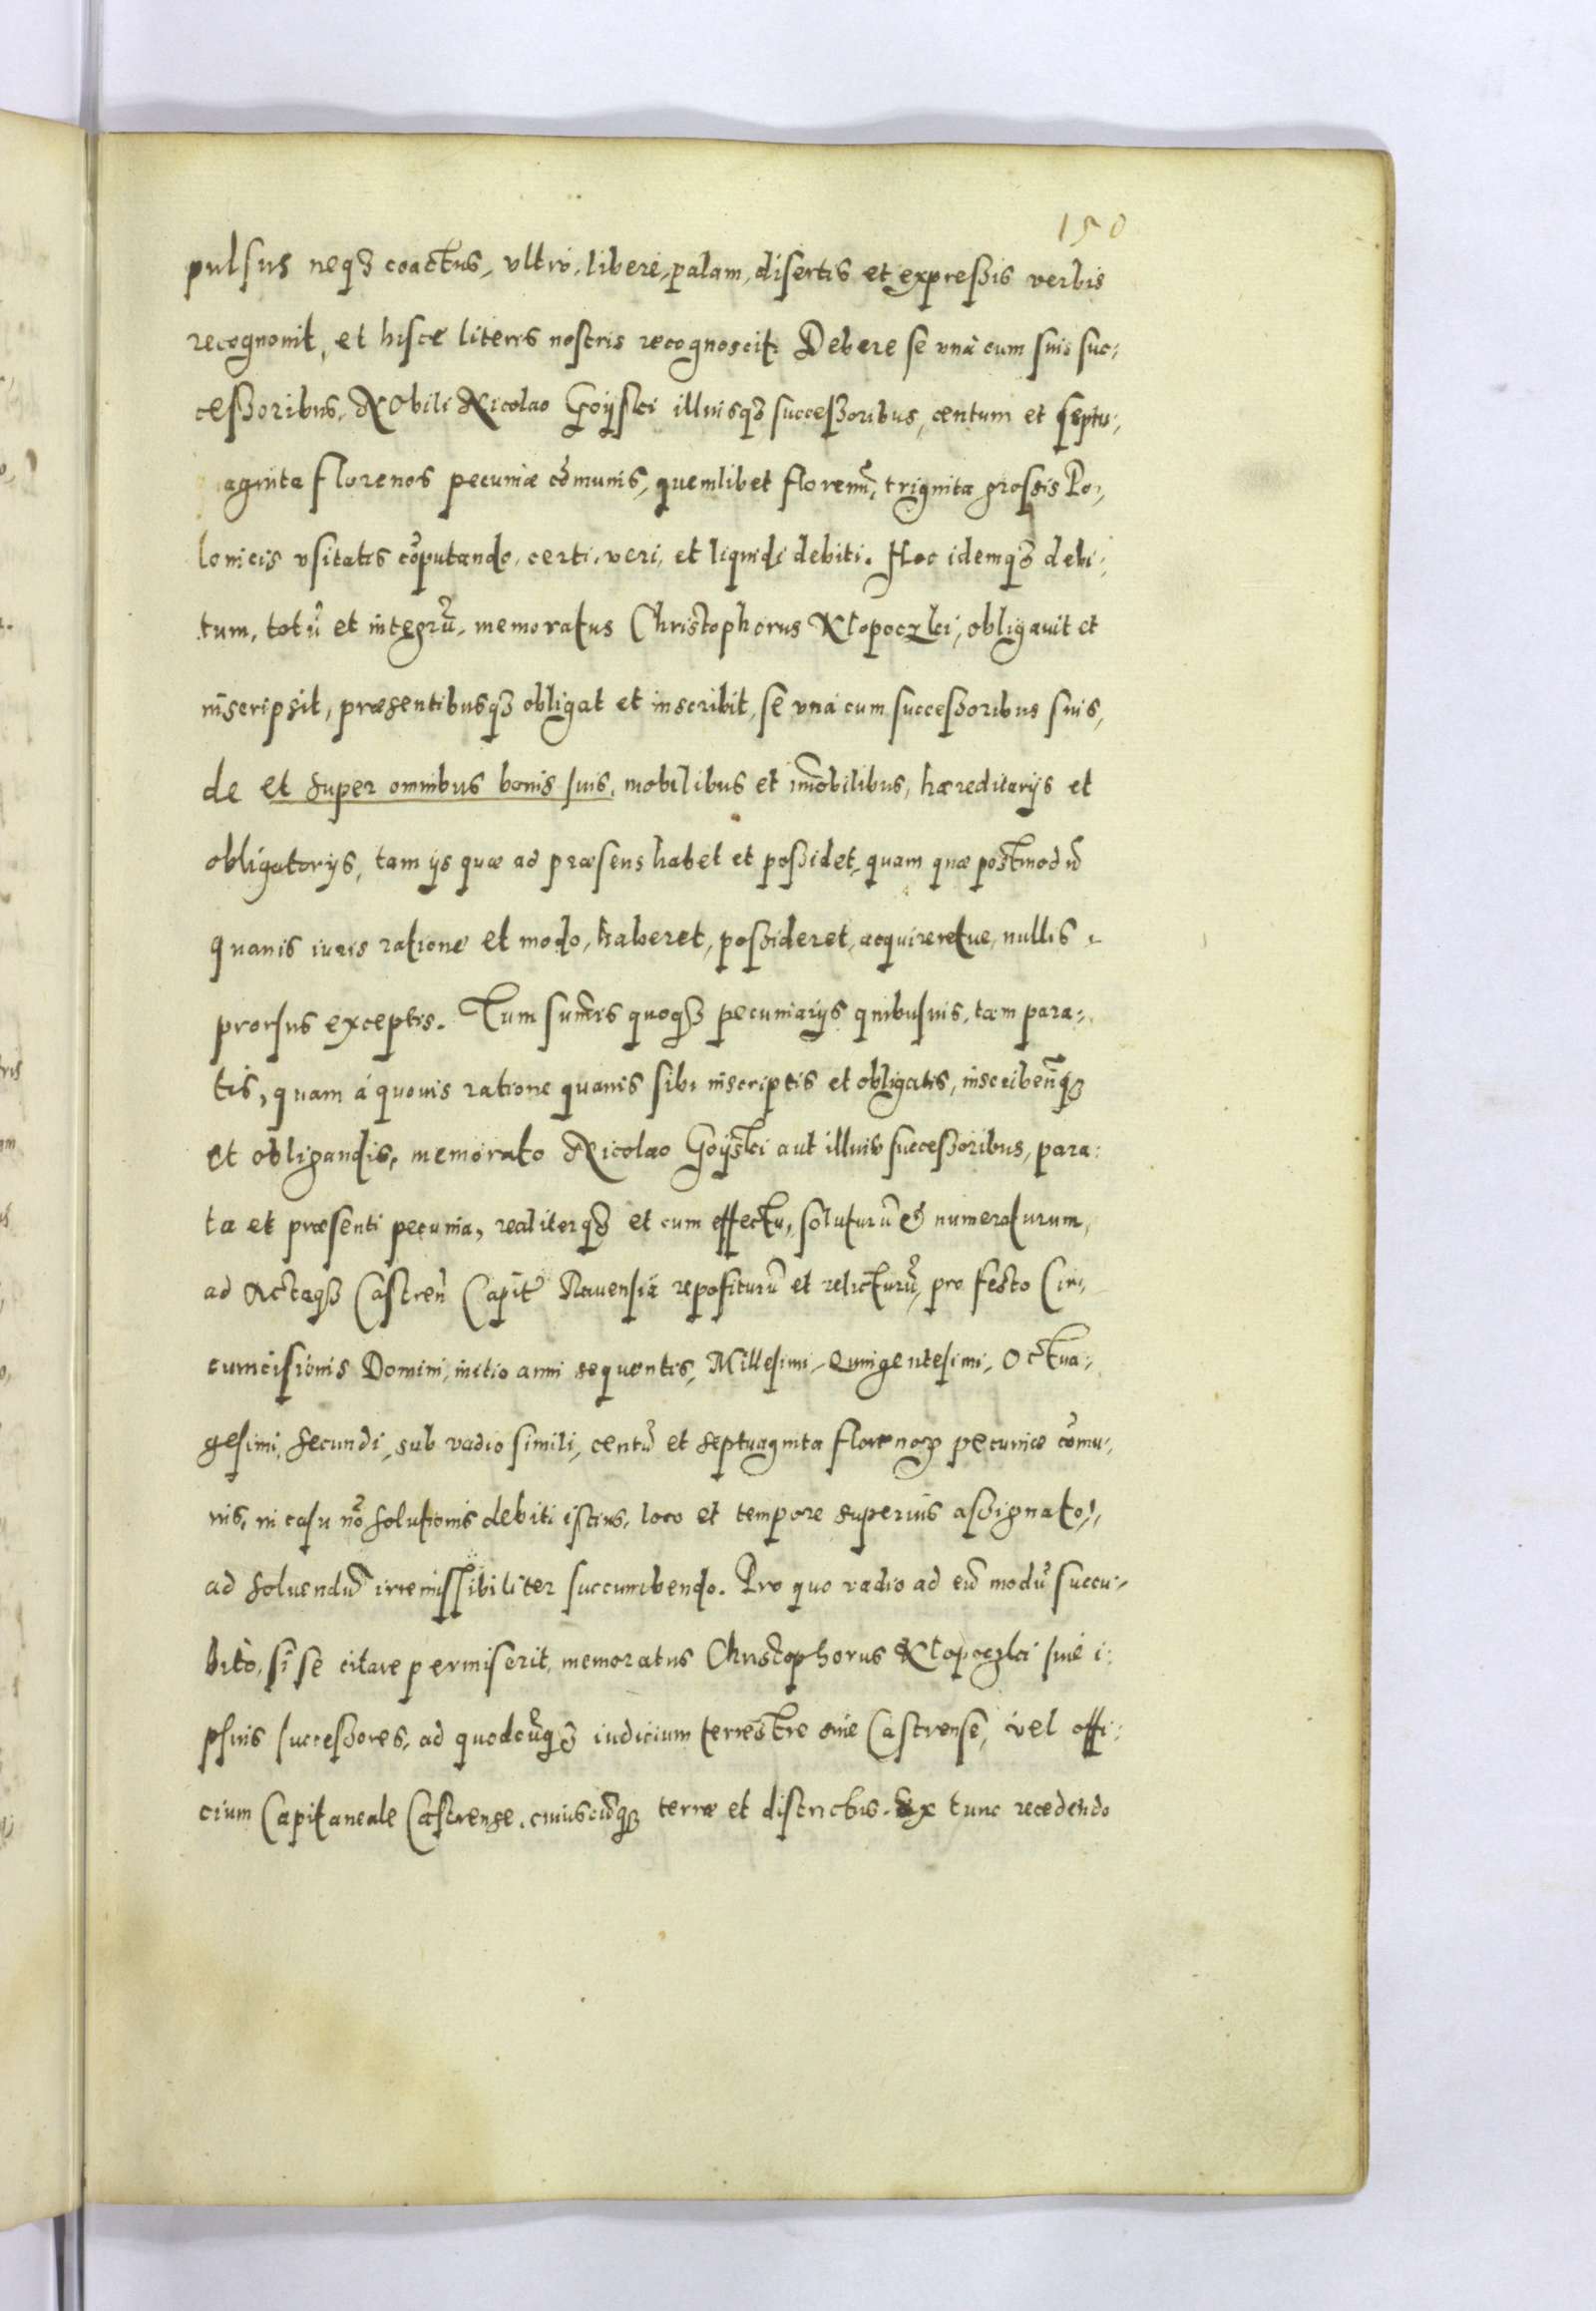 150
pulsus neqꝫ coactus, vltro, libere, palam, disertis et expreßis verbis
recognouit, et hisce literis nostris recognoscit. Debere se vnà cum suis suc:
ceßoribus, Nobili Nicolao Goÿski illiusqꝫ succeßoribus, centum et septu:
aginta florenos pecuniæ cōmunis, quemlibet florenū, triginta grossis Po:
lonicis vsitatis cōputando, certi, veri, et liquidi debiti. Hoc idemqꝫ debi:
tum, totū et integrū, memoratus Christophorus Klopoczki, obligauit et
inscripsit, præsentibusqꝫ obligat et inscribit, se vnà cum succeßoribus suis,
de et super omnibus bonis suis, mobilibus et im̄obilibus, hæreditarijs et
obligatorijs, tam ijs quæ ad præsens habet et poßidet, quam quæ postmodū
quauis iuris ratione et modo, haberet, poßideret, acquireretue, nullis
prorsus exceptis. Tum sum̄is quoqꝫ pecuniarijs quibusuis, tam para:
tis, quam à quouis ratione quauis sibi inscriptis et obligatis, inscriben̄qꝫ
et obligandis, memorato Nicolao Goÿski aut illius succeßoribus, para:
ta et præsenti pecunia, realiterqꝫ et cum effectu, soluturū & numeraturum,
ad Actaqꝫ Castren̄ Capit̄ Rauensia repositurū et relicturū, pro festo Cir:
cumcisionis Domini, initio anni sequentis, Millesimi, Quingentesimi, Octua:
gesimi, secundi, sub vadio simili, centū et septuaginta florenoꝝ pecuniæ cōmu:
nis, in casu nō solutionis debiti istius, loco et tempore superius aßignato,
ad soluendū irremissibiliter succumbendo. Pro quo vadio ad eū modū succu:
bito, si se citare permiserit, memoratus Christophorus Klopoczki siue i:
psius succeßores, ad quodcūqꝫ iudicium terrestre siue Castrense, vel offi:
cium Capitaneale Castrense, cuiuscūqꝫ terræ et districtus. Ex tunc recedendo